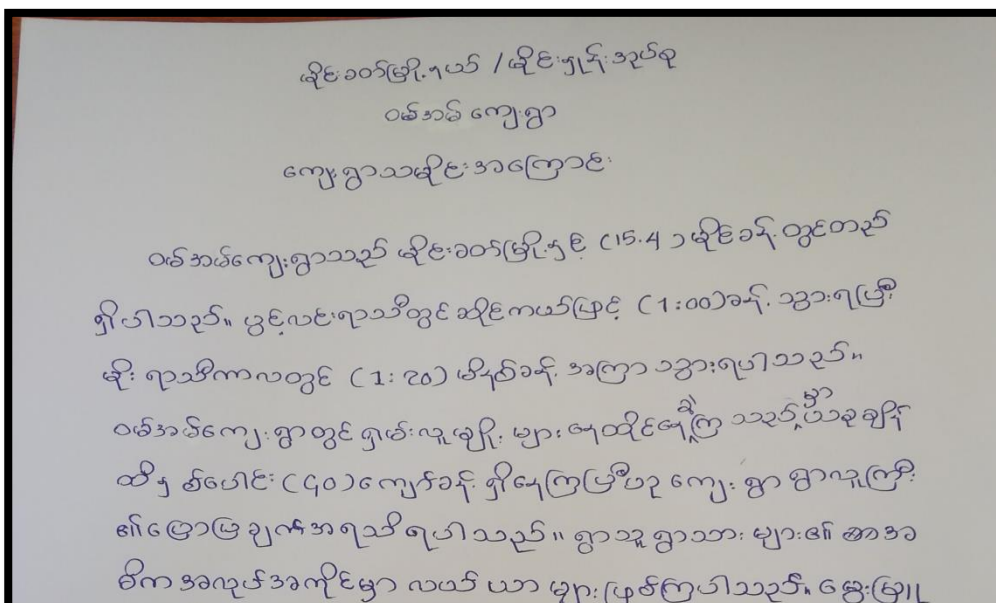 မိုင်းခတ်မြို့နယ် / မိုင်းရှုန်းအုပ်စု
ဝမ်အမ် ကျေးရွာ
ကျေးရွာသမိုင်းအကြောင်း
ဝမ်အမ်ကျေးရွာသည် မိုင်းခတ်မြို့နှင့် (15.4) မိုင်ခန့် တွင်တည်
ရှိပါသည်။ ပွင့်လင်းရာသီတွင် ဆိုင်ကယ်ဖြင့် (1:00)ခန့် သွားရပြီး
မိုး ရာသီကာလတွင် (1:20) မိနစ်ခန့် အကြာ သွားရပါသည်။
ဝမ်အမ်ကျေးရွာတွင် ရှမ်းလူမျိုး များ နေထိုင်နေခဲ့ကြ သည့်မှာ ယခုချိန်
ထိ နှစ်ပေါင်း (၄၀) ကျော်ခန့် ရှိနေကြပြီဟု ကျေး ရွာ ရွာလူကြီး
၏ ပြောပြ ချက်အရသိရပါသည်။ ရွာသူ ရွာသား များ၏ အာအ
ဓိက အလုပ်အကိုင်မှာ လယ် ယာ များ ဖြစ်ကြပါသည်။ မွေးမြူ